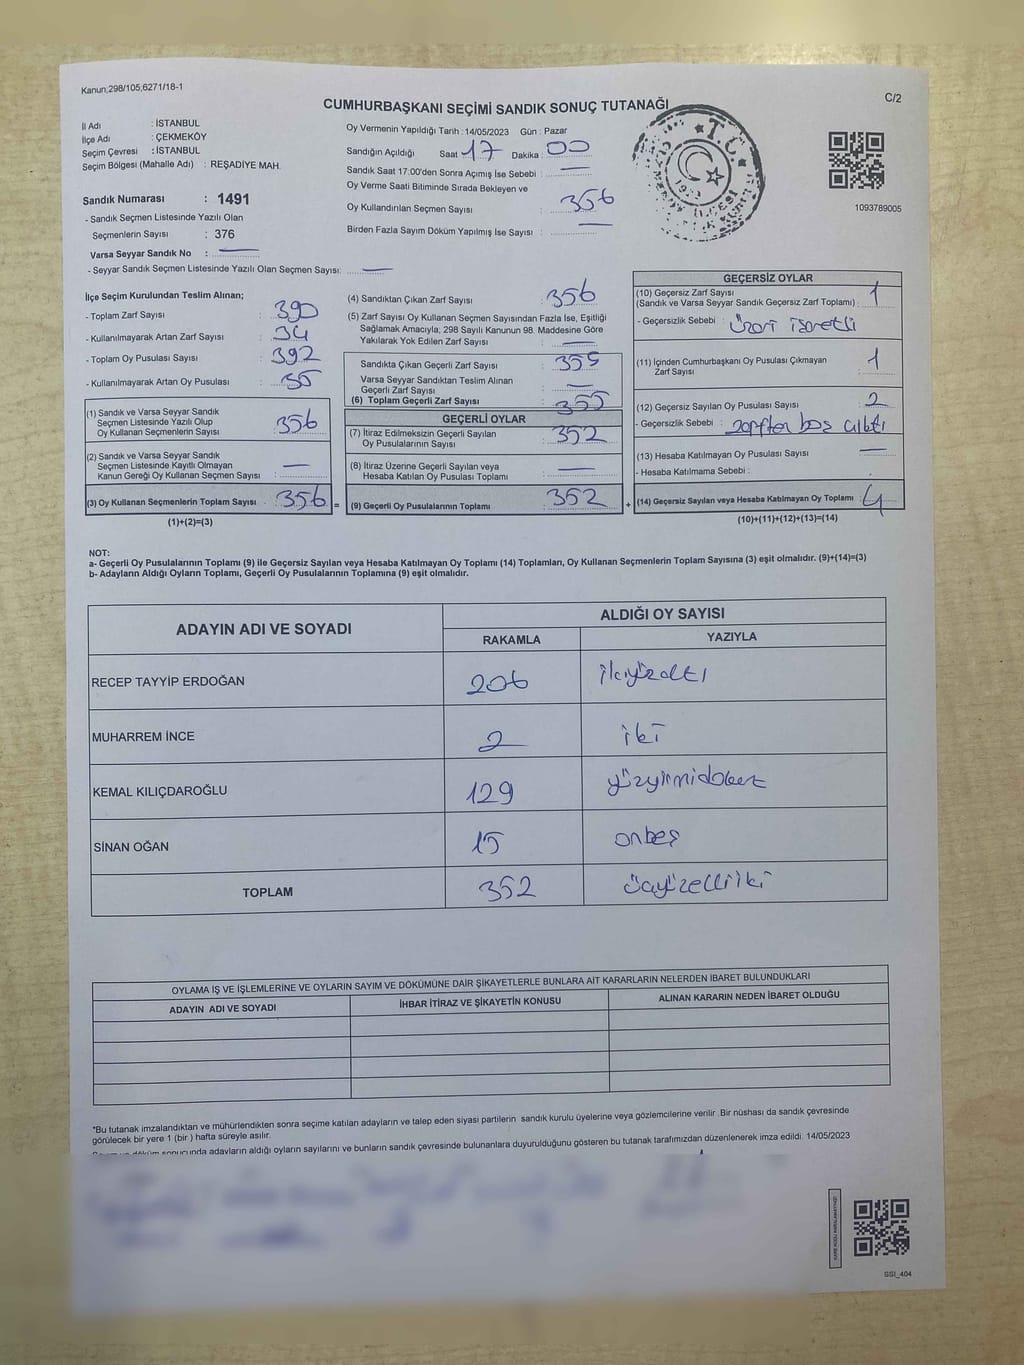 Kanun;298/105;6271/18-1
C/2
CUMHURBAŞKANI SEÇİMİ SANDIK SONUÇ TUTANAĞI
İl Adı : İSTANBUL
İlçe Adı : ÇEKMEKÖY
Seçim Çevresi : İSTANBUL
Seçim Bölgesi (Mahalle Adı) : REŞADİYE MAH.
Sandık Numarası : 1491
- Sandık Seçmen Listesinde Yazılı Olan
Seçmenlerin Sayısı : 376
Varsa Seyyar Sandık No : —
- Seyyar Sandık Seçmen Listesinde Yazılı Olan Seçmen Sayısı: —
Oy Vermenin Yapıldığı Tarih : 14/05/2023 Gün : Pazar
Sandığın Açıldığı Saat 17 Dakika : 00
Sandık Saat 17.00'den Sonra Açımış İse Sebebi : —
Oy Verme Saati Bitiminde Sırada Bekleyen ve
Oy Kullandırılan Seçmen Sayısı : 356
Birden Fazla Sayım Döküm Yapılmış İse Sayısı : —
T.C.
1093789005
İlçe Seçim Kurulundan Teslim Alınan;
- Toplam Zarf Sayısı : 390
- Kullanılmayarak Artan Zarf Sayısı : 34
- Toplam Oy Pusulası Sayısı : 392
- Kullanılmayarak Artan Oy Pusulası :
(1) Sandık ve Varsa Seyyar Sandık
Seçmen Listesinde Yazılı Olup
Oy Kullanan Seçmenlerin Sayısı : 356
(2) Sandık ve Varsa Seyyar Sandık
Seçmen Listesinde Kayıtlı Olmayan
Kanun Gereği Oy Kullanan Seçmen Sayısı : —
(3) Oy Kullanan Seçmenlerin Toplam Sayısı : 356 =
(1)+(2)=(3)
(4) Sandıktan Çıkan Zarf Sayısı : 356
(5) Zarf Sayısı Oy Kullanan Seçmen Sayısından Fazla İse, Eşitliği
Sağlamak Amacıyla; 298 Sayılı Kanunun 98. Maddesine Göre
Yakılarak Yok Edilen Zarf Sayısı : —
Sandıkta Çıkan Geçerli Zarf Sayısı : 355
Varsa Seyyar Sandıktan Teslim Alınan
Geçerli Zarf Sayısı : —
(6) Toplam Geçerli Zarf Sayısı : 355
GEÇERLİ OYLAR
(7) İtiraz Edilmeksizin Geçerli Sayılan
Oy Pusulalarının Sayısı : 352
(8) İtiraz Üzerine Geçerli Sayılan veya
Hesaba Katılan Oy Pusulası Toplamı : —
(9) Geçerli Oy Pusulalarının Toplamı : 352 +
GEÇERSİZ OYLAR
(10) Geçersiz Zarf Sayısı
(Sandık ve Varsa Seyyar Sandık Geçersiz Zarf Toplamı) : 1
- Geçersizlik Sebebi : Üzeri işaretli
(11) İçinden Cumhurbaşkanı Oy Pusulası Çıkmayan
Zarf Sayısı : 1
(12) Geçersiz Sayılan Oy Pusulası Sayısı : 2
- Geçersizlik Sebebi : zarftan boş çıktı
(13) Hesaba Katılmayan Oy Pusulası Sayısı : —
- Hesaba Katılmama Sebebi :
(14) Geçersiz Sayılan veya Hesaba Katılmayan Oy Toplamı : 4
(10)+(11)+(12)+(13)=(14)
NOT:
a- Geçerli Oy Pusulalarının Toplamı (9) ile Geçersiz Sayılan veya Hesaba Katılmayan Oy Toplamı (14) Toplamları, Oy Kullanan Seçmenlerin Toplam Sayısına (3) eşit olmalıdır. (9)+(14)=(3)
b- Adayların Aldığı Oyların Toplamı, Geçerli Oy Pusulalarının Toplamına (9) eşit olmalıdır.
ADAYIN ADI VE SOYADI
ALDIĞI OY SAYISI
RAKAMLA YAZIYLA
RECEP TAYYİP ERDOĞAN 206 ikiyüzaltı
MUHARREM İNCE 2 iki
KEMAL KILIÇDAROĞLU 129 yüzyirmidokuz
SİNAN OĞAN 15 onbeş
TOPLAM 352 üçyüzelliiki
OYLAMA İŞ VE İŞLEMLERİNE VE OYLARIN SAYIM VE DÖKÜMÜNE DAİR ŞİKAYETLERLE BUNLARA AİT KARARLARIN NELERDEN İBARET BULUNDUKLARI
ADAYIN ADI VE SOYADI İHBAR İTİRAZ VE ŞİKAYETİN KONUSU ALINAN KARARIN NEDEN İBARET OLDUĞU
*Bu tutanak imzalandıktan ve mühürlendikten sonra seçime katılan adayların ve talep eden siyasi partilerin sandık kurulu üyelerine veya gözlemcilerine verilir .Bir nüshası da sandık çevresinde
görülecek bir yere 1 (bir ) hafta süreyle asılır.
döküm sonucunda adayların aldığı oyların sayılarını ve bunların sandık çevresinde bulunanlara duyurulduğunu gösteren bu tutanak tarafımızdan düzenlenerek imza edildi. 14/05/2023
SSI_404